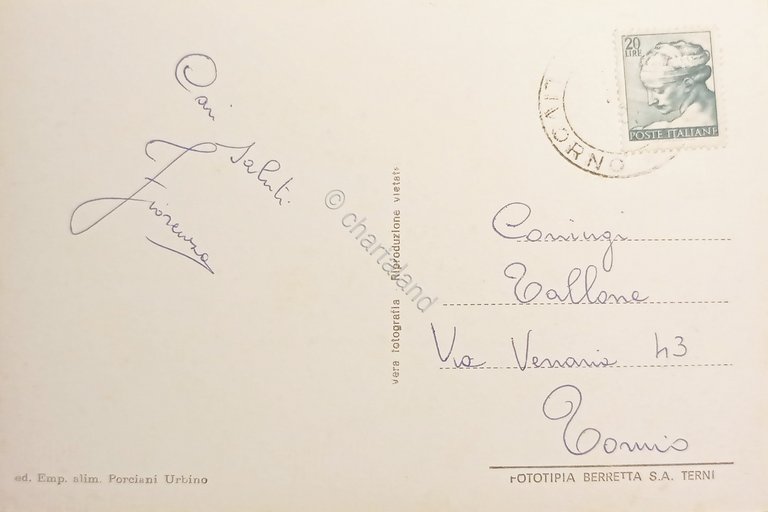 Cari Saluti.
Fiorenza
vera fotografia. Riproduzione vietata
© chartaland
20
LIRE
POSTE ITALIANE
ORNO
Coniugi
Tallone
Via Venaria 43
Torino
ed. Emp. alim. Porciani Urbino
FOTOTIPIA BERRETTA S.A. TERNI